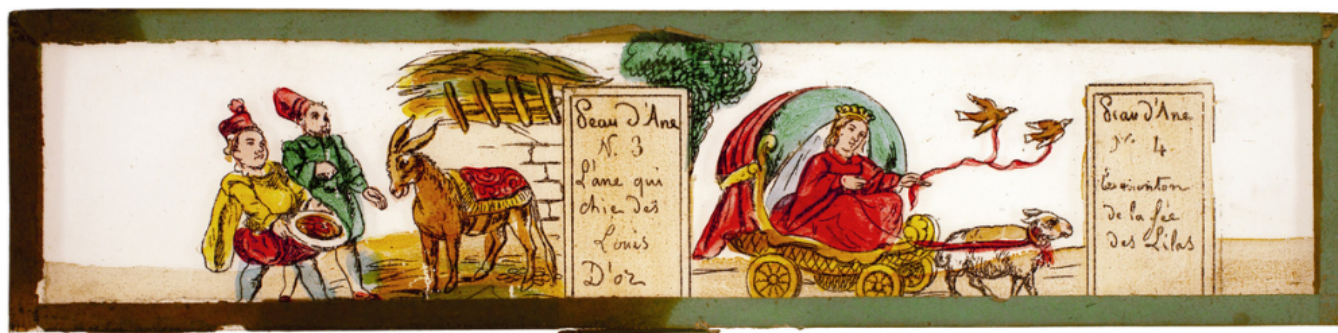 Peau d'Ane
N. 3
L'ane qui
chie des
Louis
D'or
Peau d'Ane
N°. 4
Le mouton
de la fée
des Lilas